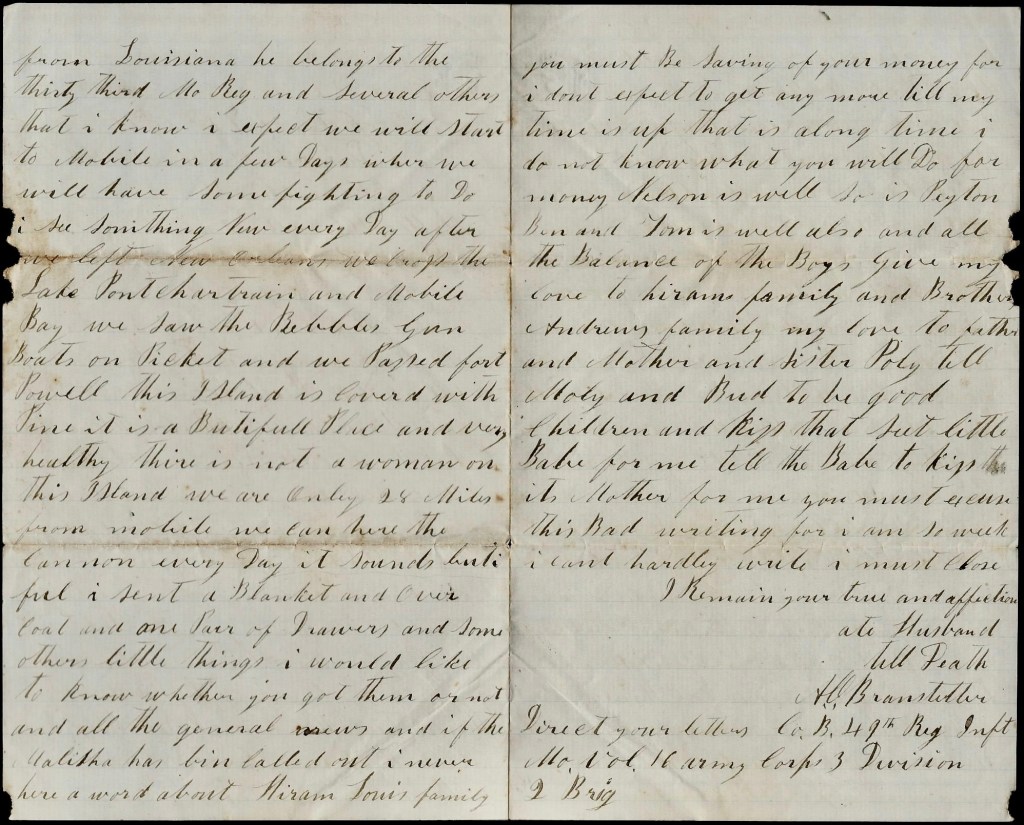 from Louisiana he belongs to the
thirty third Mo Reg and several others
that i know i expect we will start
to Mobile in a few Days wher we
will have some fighting to Do
i see somithing New every Day after
we left New Orleans we Cross the
Lake Pontchartrain and Mobile
Bay we saw the Rebbles Gun
Boats on Picket and we Passed fort
Powell this Island is coverd with
Pine it is a Butifull Place and very
healthy thire is not a woman on
this Island we are Onley 28 Miles
from mobile we can here the
Cannon every Day it sounds buti
ful i sent a Blanket and Over
Coat and one Parr of Drawers and some
others little things i would like
to know whether you got them or not
and all the general news and if the
Malitha has bin Called out i never
here a word about Hiram Louis family
you must Be Saving of your money for
i dont expect to get any more till my
time is up that is along time i
do not know what you will Do for
money Nelson is well so is Peyton
Ben and Tom is well also and all
the Balance of the Boys Give my
love to hirams family and Brother
Andrews family my love to father
and Mother and Sister Poly tell
Moly and Bud to be good
Children and Kiss that seet little
Babe for me tell the Babe to Kiss
its Mother for me you must excuse
this Bad writing for i am so week
i cant hardley write i must Close
I Remain your true and affection
ate Husband
till Death
A.C. Branstetter
Direct your letters Co. B. 49th Reg Inft
Mo. Vol. 16 army Corps 3 Division
2 Brig